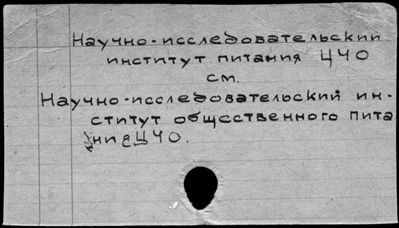 Научно-исследовательский
институт питания ЦЧО
см.
Научно-исследовательский ин-
ститут общественного пита
ния ЦЧО.